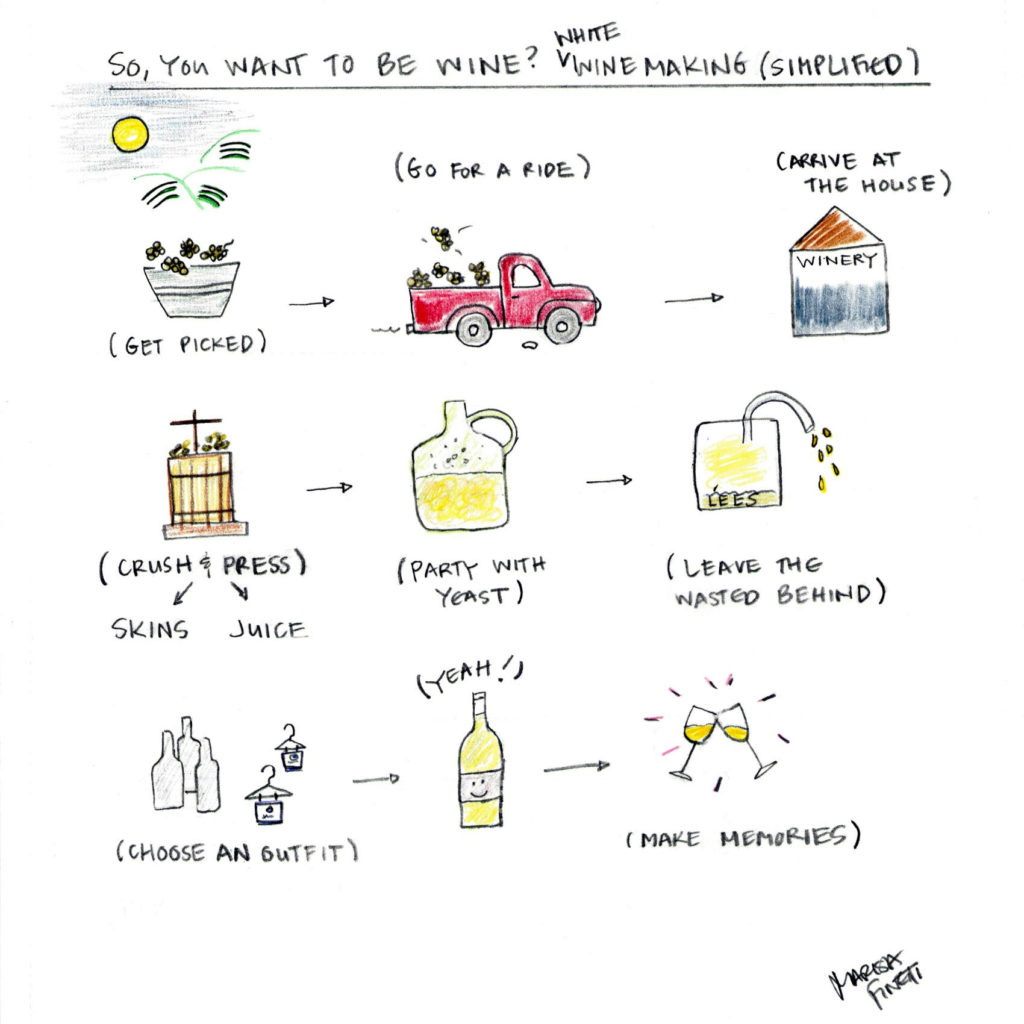 SO, YOU WANT TO BE WINE? WHITE WINE MAKING (SIMPLIFIED)
(GET PICKED)
(GO FOR A RIDE)
(ARRIVE AT
THE HOUSE)
WINERY
(CRUSH & PRESS)
SKINS JUICE
(PARTY WITH
YEAST)
LEES
(LEAVE THE
WASTED BEHIND)
(CHOOSE AN OUTFIT)
(YEAH!)
(MAKE MEMORIES)
MARISA
FINETTI